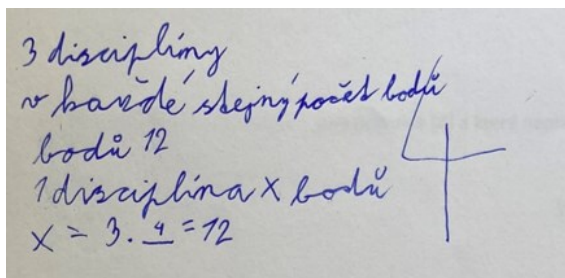 3 disciplíny
v každé stejný počet bodů
bodů 12
1 disciplína x bodů
x = 3 . 4 = 12
4